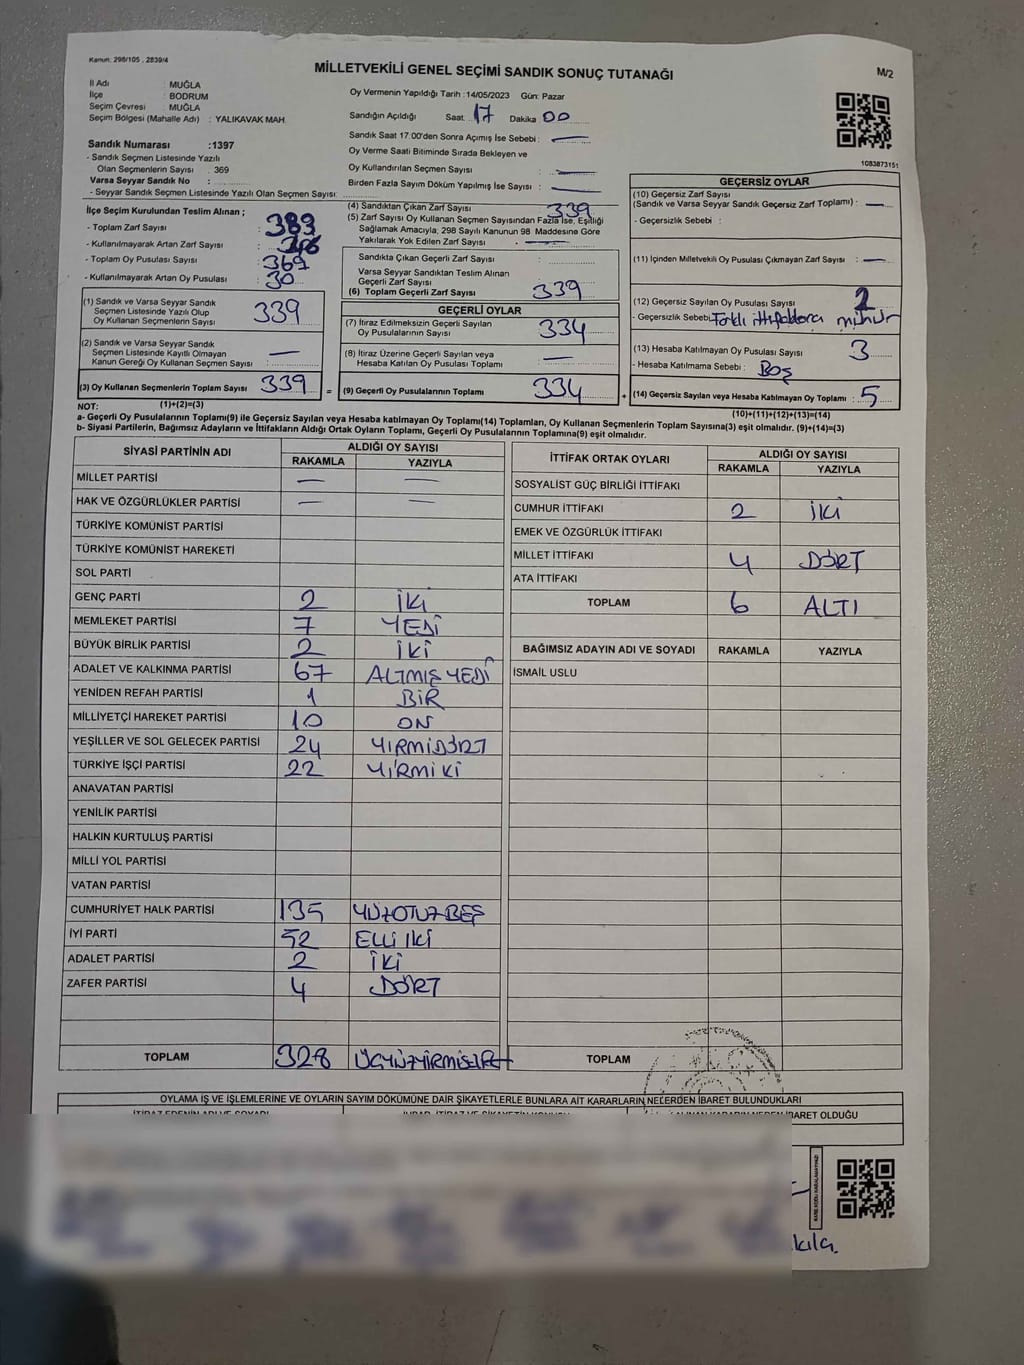 Kanun: 298/105 , 2839/4
MİLLETVEKİLİ GENEL SEÇİMİ SANDIK SONUÇ TUTANAĞI
M/2
İl Adı : MUĞLA
İlçe : BODRUM
Seçim Çevresi : MUĞLA
Seçim Bölgesi (Mahalle Adı) : YALIKAVAK MAH.
Sandık Numarası :1397
- Sandık Seçmen Listesinde Yazılı
Olan Seçmenlerin Sayısı : 369
Varsa Seyyar Sandık No :
- Seyyar Sandık Seçmen Listesinde Yazılı Olan Seçmen Sayısı:
Oy Vermenin Yapıldığı Tarih :14/05/2023 Gün: Pazar
Sandığın Açıldığı Saat 17 Dakika 00
Sandık Saat 17:00'den Sonra Açımış İse Sebebi : —
Oy Verme Saati Bitiminde Sırada Bekleyen ve
Oy Kullandırılan Seçmen Sayısı : —
Birden Fazla Sayım Döküm Yapılmış İse Sayısı : —
1083873151
İlçe Seçim Kurulundan Teslim Alınan ;
- Toplam Zarf Sayısı : 383
- Kullanılmayarak Artan Zarf Sayısı :
- Toplam Oy Pusulası Sayısı : 369
- Kullanılmayarak Artan Oy Pusulası : 30
(1) Sandık ve Varsa Seyyar Sandık
Seçmen Listesinde Yazılı Olup
Oy Kullanan Seçmenlerin Sayısı : 339
(2) Sandık ve Varsa Seyyar Sandık
Seçmen Listesinde Kayıtlı Olmayan
Kanun Gereği Oy Kullanan Seçmen Sayısı : —
(3) Oy Kullanan Seçmenlerin Toplam Sayısı : 339 =
(1)+(2)=(3)
(4) Sandıktan Çıkan Zarf Sayısı 339
(5) Zarf Sayısı Oy Kullanan Seçmen Sayısından Fazla İse, Eşitliği
Sağlamak Amacıyla; 298 Sayılı Kanunun 98. Maddesine Göre
Yakılarak Yok Edilen Zarf Sayısı : —
Sandıkta Çıkan Geçerli Zarf Sayısı :
Varsa Seyyar Sandıktan Teslim Alınan
Geçerli Zarf Sayısı :
(6) Toplam Geçerli Zarf Sayısı : 339
GEÇERLİ OYLAR
(7) İtiraz Edilmeksizin Geçerli Sayılan
Oy Pusulalarının Sayısı : 334
(8) İtiraz Üzerine Geçerli Sayılan veya
Hesaba Katılan Oy Pusulası Toplamı : —
(9) Geçerli Oy Pusulalarının Toplamı : 334 +
GEÇERSİZ OYLAR
(10) Geçersiz Zarf Sayısı
(Sandık ve Varsa Seyyar Sandık Geçersiz Zarf Toplamı) : —
- Geçersizlik Sebebi :
(11) İçinden Milletvekili Oy Pusulası Çıkmayan Zarf Sayısı : —
(12) Geçersiz Sayılan Oy Pusulası Sayısı : 2
- Geçersizlik Sebebi: Farklı ittifaklara mühür
(13) Hesaba Katılmayan Oy Pusulası Sayısı : 3
- Hesaba Katılmama Sebebi : Boş
(14) Geçersiz Sayılan veya Hesaba Katılmayan Oy Toplamı : 5
(10)+(11)+(12)+(13)=(14)
NOT:
a- Geçerli Oy Pusulalarının Toplamı(9) ile Geçersiz Sayılan veya Hesaba katılmayan Oy Toplamı(14) Toplamları, Oy Kullanan Seçmenlerin Toplam Sayısına(3) eşit olmalıdır. (9)+(14)=(3)
b- Siyasi Partilerin, Bağımsız Adayların ve İttifakların Aldığı Ortak Oyların Toplamı, Geçerli Oy Pusulalarının Toplamına(9) eşit olmalıdır.
SİYASİ PARTİNİN ADI ALDIĞI OY SAYISI
RAKAMLA YAZIYLA
MİLLET PARTİSİ — —
HAK VE ÖZGÜRLÜKLER PARTİSİ — —
TÜRKİYE KOMÜNİST PARTİSİ
TÜRKİYE KOMÜNİST HAREKETİ
SOL PARTİ
GENÇ PARTİ 2 İKİ
MEMLEKET PARTİSİ 7 YEDİ
BÜYÜK BİRLİK PARTİSİ 2 İKİ
ADALET VE KALKINMA PARTİSİ 67 ALTMIŞ YEDİ
YENİDEN REFAH PARTİSİ 1 BİR
MİLLİYETÇİ HAREKET PARTİSİ 10 ON
YEŞİLLER VE SOL GELECEK PARTİSİ 24 YIRMİDÖRT
TÜRKİYE İŞÇİ PARTİSİ 22 YİRMİ Kİ
ANAVATAN PARTİSİ
YENİLİK PARTİSİ
HALKIN KURTULUŞ PARTİSİ
MİLLİ YOL PARTİSİ
VATAN PARTİSİ
CUMHURİYET HALK PARTİSİ 135 YÜZOTUZBEŞ
İYİ PARTİ 52 ELLİ İKİ
ADALET PARTİSİ 2 İKİ
ZAFER PARTİSİ 4 DÖRT
TOPLAM 328
İTTİFAK ORTAK OYLARI ALDIĞI OY SAYISI
RAKAMLA YAZIYLA
SOSYALİST GÜÇ BİRLİĞİ İTTİFAKI
CUMHUR İTTİFAKI 2 İKİ
EMEK VE ÖZGÜRLÜK İTTİFAKI
MİLLET İTTİFAKI 4 DÖRT
ATA İTTİFAKI
TOPLAM 6 ALTI
BAĞIMSIZ ADAYIN ADI VE SOYADI RAKAMLA YAZIYLA
İSMAİL USLU
TOPLAM
OYLAMA İŞ VE İŞLEMLERİNE VE OYLARIN SAYIM DÖKÜMÜNE DAİR ŞİKAYETLERLE BUNLARA AİT KARARLARIN NELERDEN İBARET BULUNDUKLARI
İBARET OLDUĞU